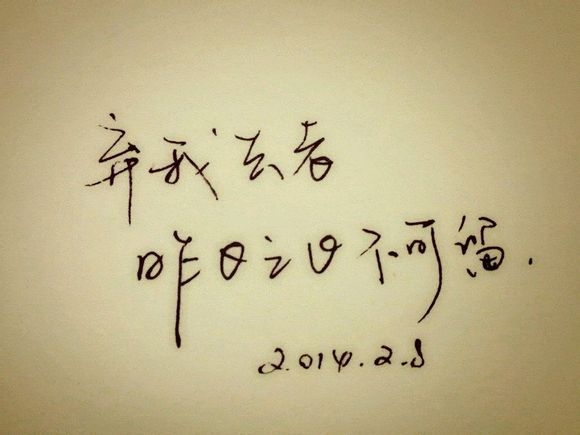 弃我去者
昨日之日不可留.
2.014.2.8